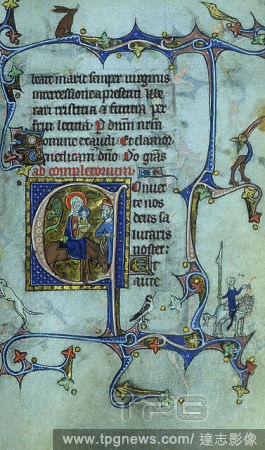 beate marie semper virginis
intercessione a presenti libe
rari tristitia et futura per
frui letitia P dnm nrm
Domine exaudi Et clamor
Benedicam dno Do gras
ad completorium
Conuer
te nos
deus sa
lutaris
noster
Et
auerte
TPG
www.tpgnews.com/ 達志影像